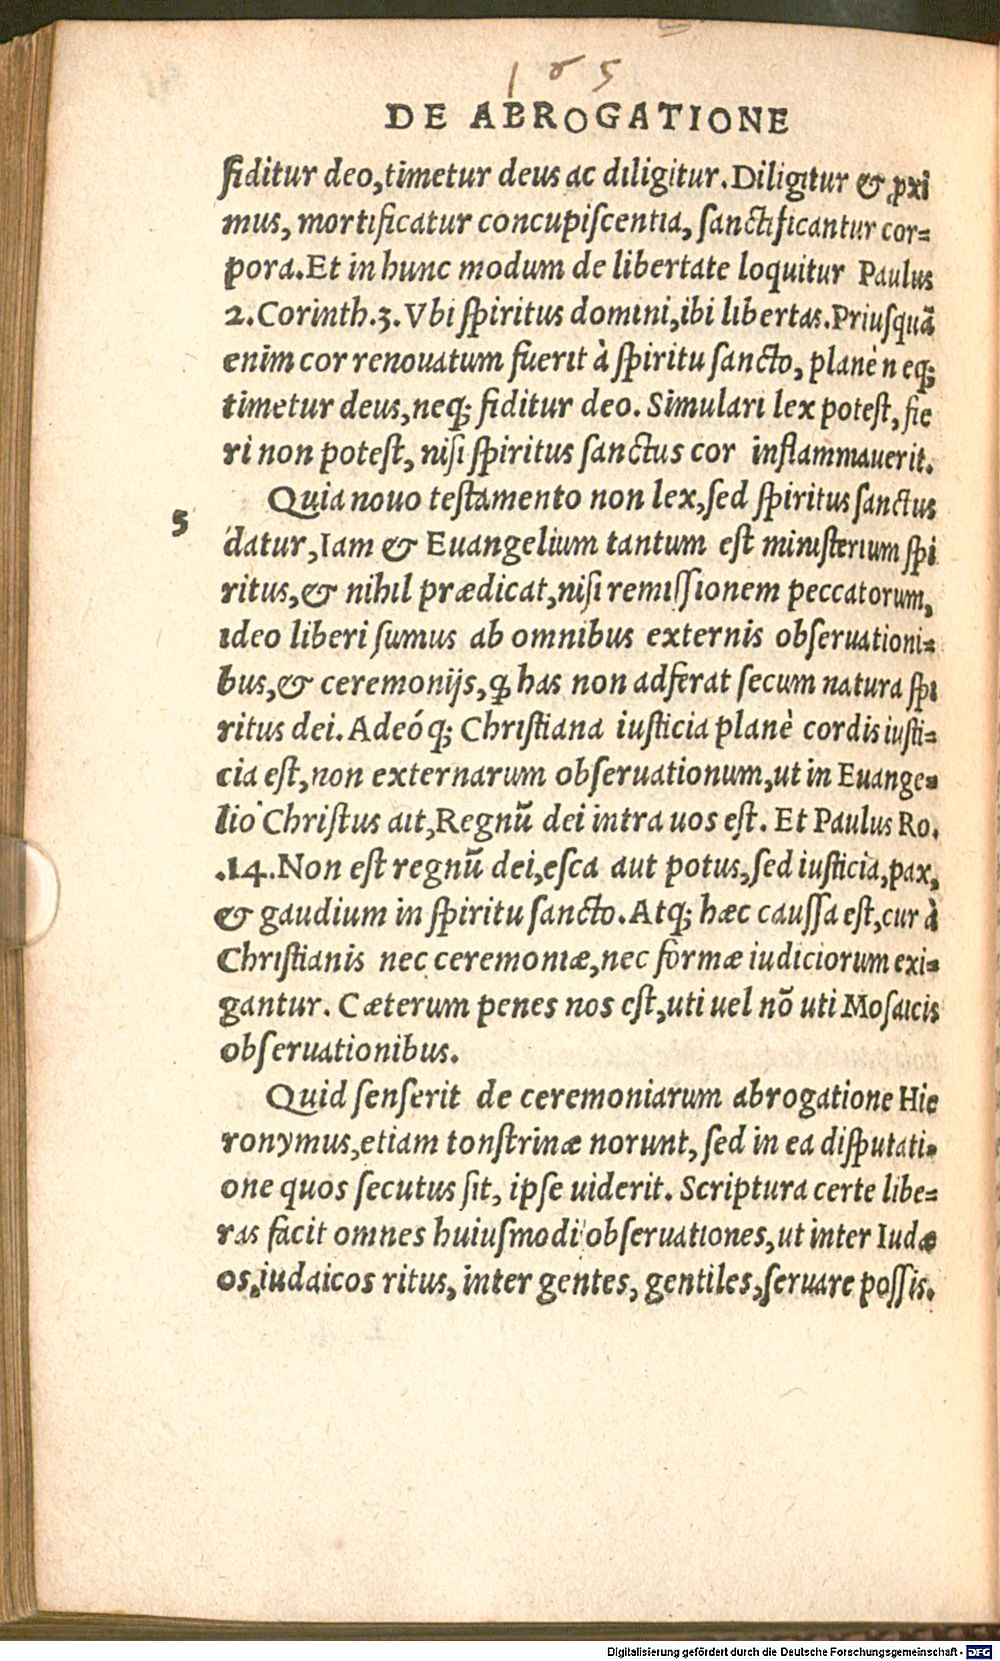 185
DE ABROGATIONE
fiditur deo, timetur deus ac diligitur. Diligitur & ꝓxi
mus, mortificatur concupiſcentia, ſanctificantur cor-
pora. Et in hunc modum de libertate loquitur Paulus
2. Corinth. 3. Vbi ſpiritus domini, ibi libertas. Priuſquā
enim cor renouatum fuerit à ſpiritu ſancto, planè neq;
timetur deus, neq; fiditur deo. Simulari lex poteſt, fie
ri non poteſt, niſi ſpiritus ſanctus cor inflammauerit.
Quia nouo teſtamento non lex, ſed ſpiritus ſanctus
5
datur, Iam & Euangelium tantum eſt miniſterium ſpi
ritus, & nihil prædicat, niſi remiſſionem peccatorum,
ideo liberi ſumus ab omnibus externis obſeruationi-
bus, & ceremonijs, ꝙ has non adferat ſecum natura ſpi
ritus dei. Adeóq; Chriſtiana iuſticia planè cordis iuſti-
cia eſt, non externarum obſeruationum, ut in Euange-
lio Chriſtus ait, Regnū dei intra uos eſt. Et Paulus Ro.
.14. Non eſt regnū dei, eſca aut potus, ſed iuſticia, pax,
& gaudium in ſpiritu ſancto. Atq; hæc cauſſa eſt, cur à
Chriſtianis nec ceremoniæ, nec formæ iudiciorum exi-
gantur. Cæterum penes nos eſt, uti uel nō uti Moſaicis
obſeruationibus.
Quid ſenſerit de ceremoniarum abrogatione Hie
ronymus, etiam tonſtrinæ norunt, ſed in ea diſputati-
one quos ſecutus ſit, ipſe uiderit. Scriptura certe libe-
ras facit omnes huiuſmodi obſeruationes, ut inter Iudæ
os, iudaicos ritus, inter gentes, gentiles, ſeruare poſſis.
Digitalisierung gefördert durch die Deutsche Forschungsgemeinschaft - DFG